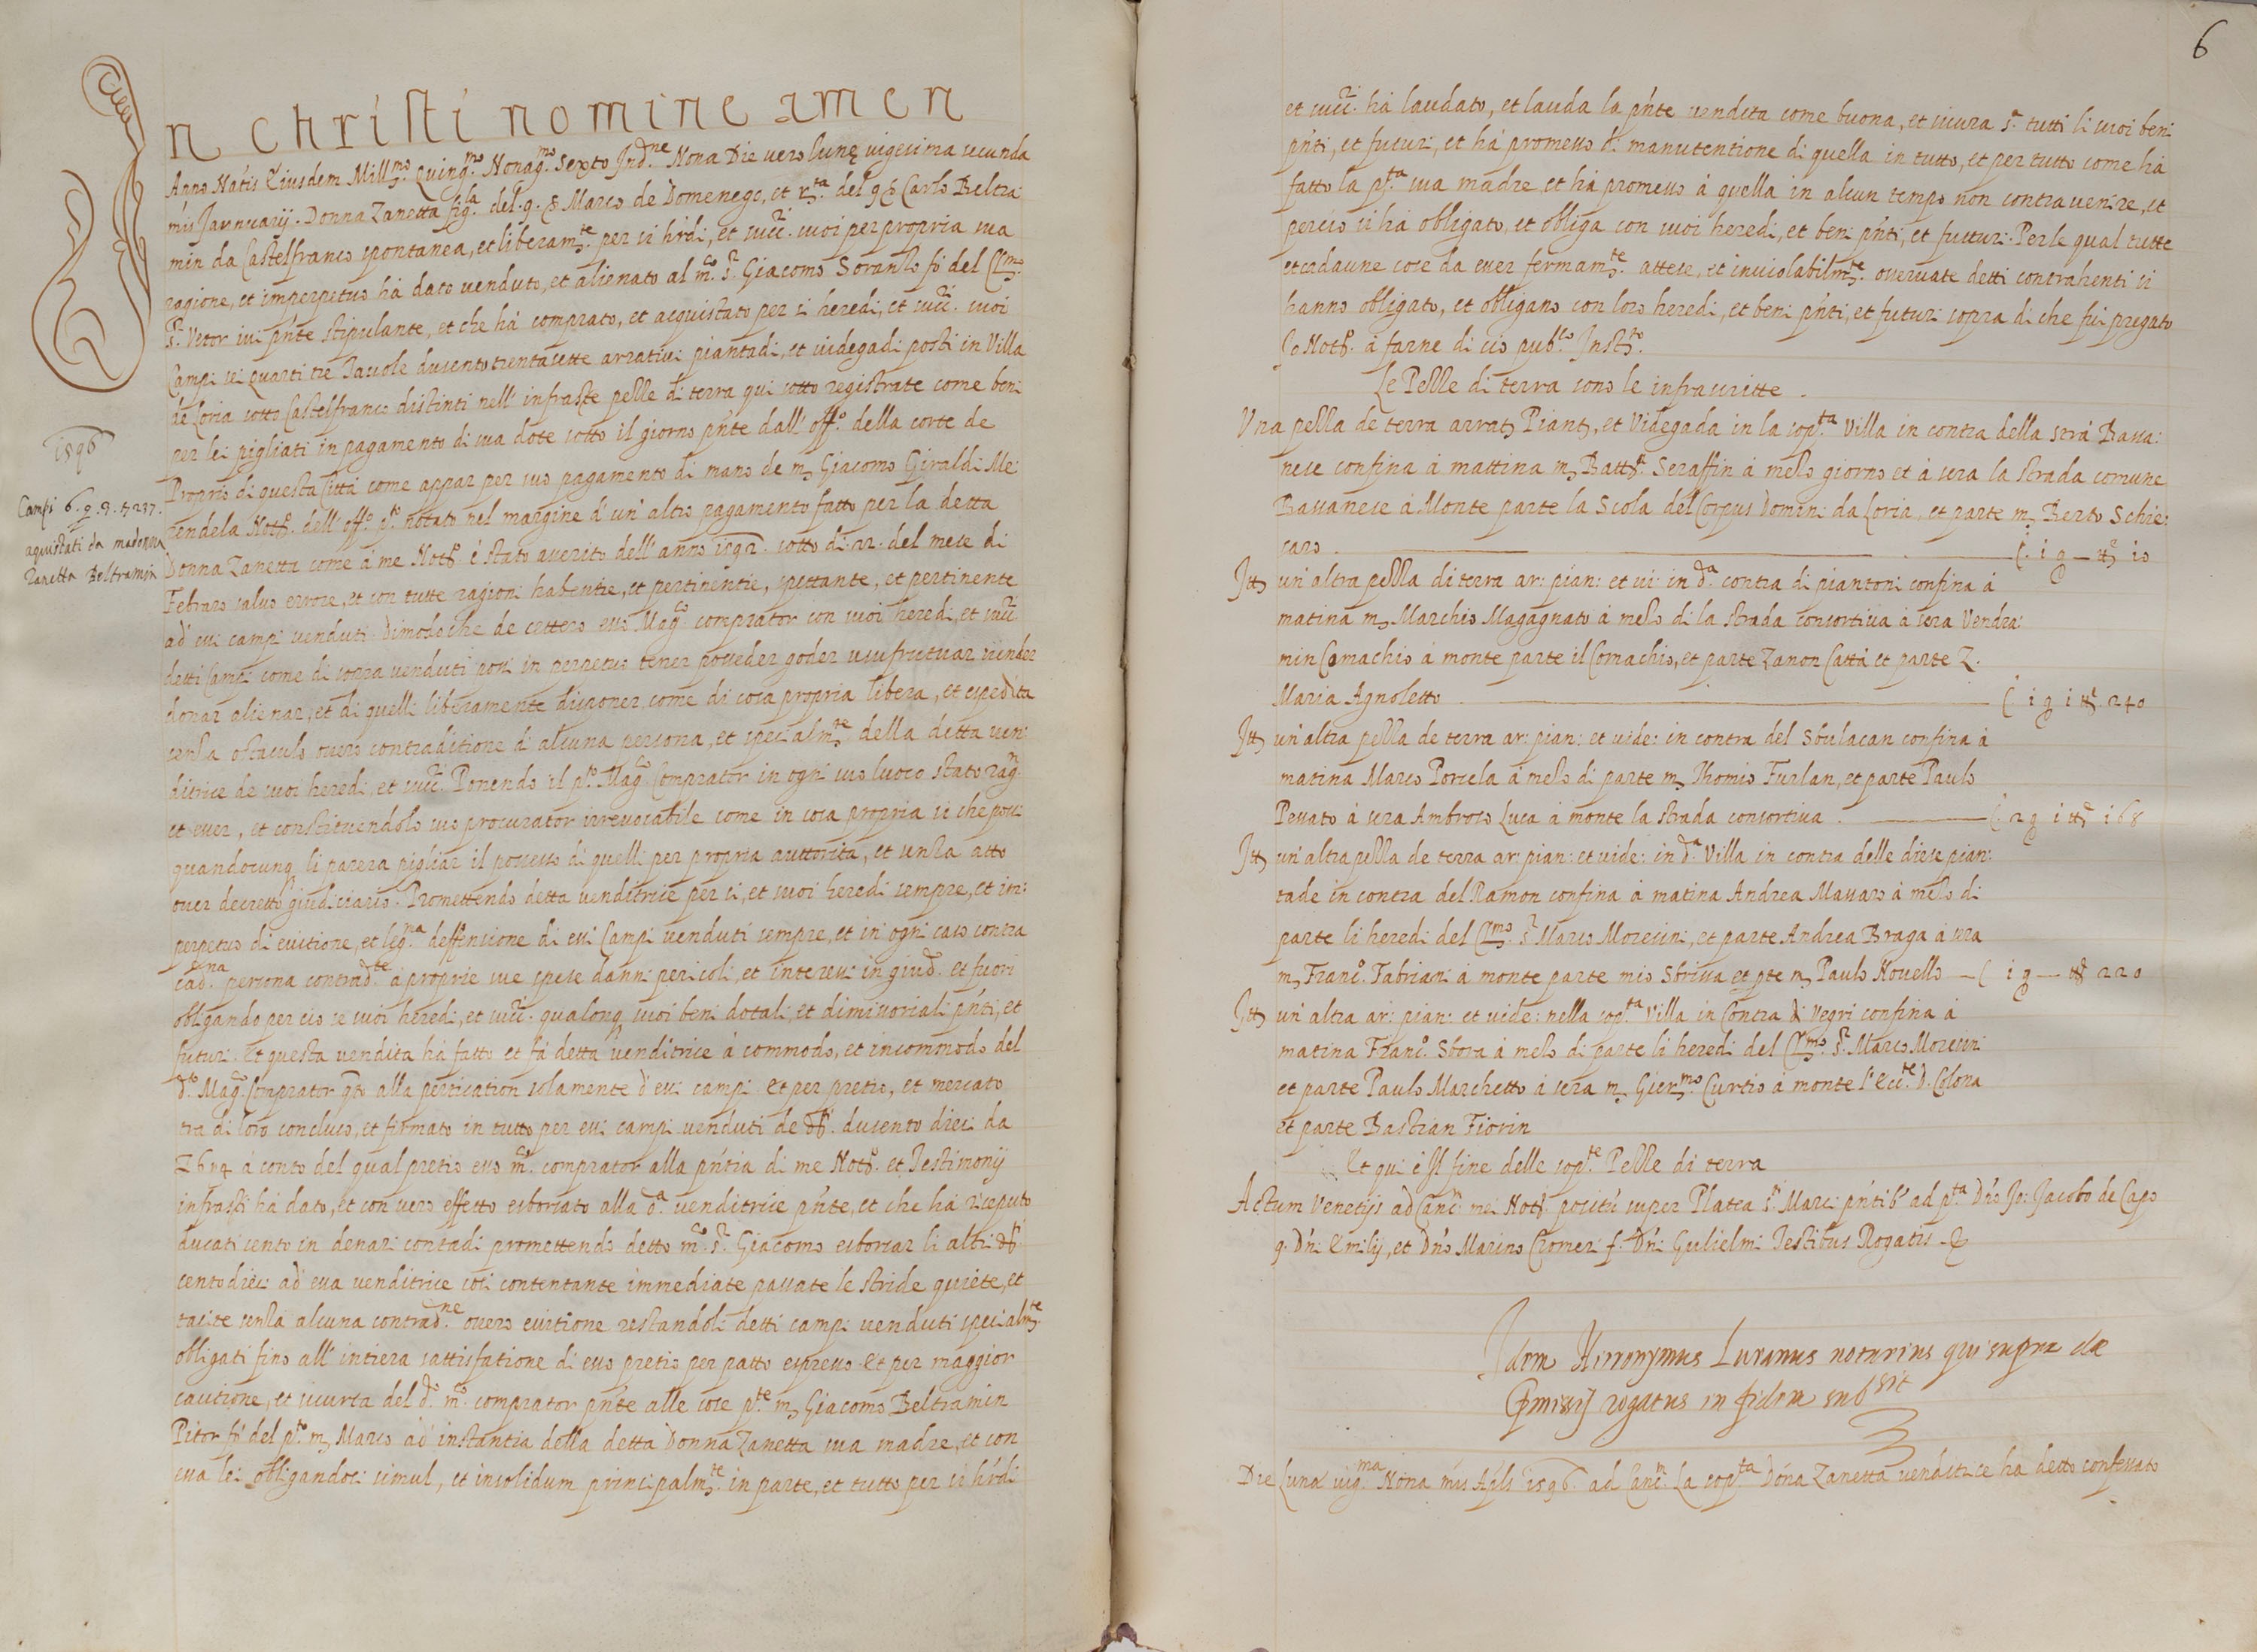 In Christi nomine amen
Anno Nat̃is Eiusdem Mill.mo Quing.mo Nonag.mo Sexto Ind.ne Nona Die vero lunę vigesima secunda
mis Jannuarij. Donna Zanetta fig.la del. q. Marco de Domenego, et del q. Carlo Beltra:
min da Castelfranco spontanea, et liberam.te per si h̃rdi, et succ.ri suoi per propria sua
ragione, et imperpetuo hà dato venduto, et alienato al m.co s.r Giacomo Soranzo fò del Cl.mo
s.r Vetor ivi p̃nte stipulante, et che hà comprato, et acquistato per si heredi, et succ.ri suoi
Campi sei quarti tre Tavole dusento trentasette arrativi piantadi, et videgadi posti in Villa
de Loria sotto Castelfranco distinti nell' infras̃te pezze di terra qui sotto registrate come beni
per lei pigliati in pagamento di sua dote sotto il giorno p̃nte dall' off.o della corte de
Proprio di questa Città come appar per suo pagamento di mano de m. Giacomo Giraldi Me:
rendela Nod.o dell' off.o p.to notato nel margine d' un' altro pagamento fatto per la detta
Donna Zanetta come à me Nod.o é stato averito dell' anno 1592. sotto dì. 22. del mese di
Febraro salvo errore, et con tutte ragioni habentie, et pertinentie, spettante, et pertinente
ad essi campi venduti. Dimodoche de cettero esso Mag.co comprator con suoi heredi, et succ.ri
detti campi come di sopra venduti possi in perpetuo tener posseder goder usufrutuar vender
donar alienar, et di quelli liberamente disponer come di cosa propria libera, et espedita
senza ostaculo overo contraditione di alcuna persona, et specialm.te della detta ven:
ditrice de suoi heredi, et succ.ri Ponendo il p.to Mag.co Comprator in ogni suo luoco stato rag.n
et esser, et constituendolo suo procurator irrevocabile come in cosa propria si che possi
quandocunq li parera pigliar il possesso di quelli per propria auttorità, et senza atto
over decretto giudiciario. Promettendo detta venditrice per si, et suoi heredi sempre, et im:
perpetuo di evitione, et leg.ma deffensione di essi Campi venduti sempre, et in ogni caso contra
cad.na persona contrad.te à proprie sue spese danni pericoli, et interessi in giud.o et fuori
obligando per ciò se suoi heredi, et succ.ri qualonq suoi beni dotali, et dimissoriali p̃nti, et
futuri. Et questa vendita hà fatto et fà detta venditrice à commodo, et incommodo del
d.o Mag.co Comprator q̃to alla pertication solamente d' essi campi. Et per pretio, et mercato
tra di loro concluso, et firmato in tutto per essi campi venduti de d.ti dusento dieci da
£ 6 s 4 à conto del qual pretio esso m.co comprator alla p̃ntia di me Nod.o et Testimonij
infras̃ti hà dato, et con vero effetto esborsato alla d.a venditrice p̃nte, et che hà riceputo
ducati cento in denari contadi promettendo detto m.co s.r Giacomo esborsar li altri d.ti
cento dieci ad essa venditrice così contentante immediate passate le stride quiete, et
tacite senza alcuna contrad.ne overo evitione restandoli detti campi venduti specialm.te
obligati fino all' intiera sattisfatione di esso pretio per patto espresso. Et per maggior
cautione, et sicurtà del d.o m.co comprator p̃nte alle cose p.te m. Giacomo Beltramin
Pitor fò del p.to m. Marco ad instantia della detta Donna Zanetta sua madre, et con
essa lei obligandosi simul, et insolidum principalm.te in parte, et tutto per si h̃rdi
1596
Campi 6. q. 3. t. 237.
aquistati da madonna
Zanetta Beltramin
6
et succ.ri hà laudato, et lauda la p̃nte vendita come buona, et sicura s.a tutti li suoi beni
p̃nti, et futuri, et hà promesso di manutentione di quella in tutto, et per tutto come hà
fatto la p.ta sua madre, et hà promesso à quella in alcun tempo non contravenire, et
perciò si hà obligato, et obliga con suoi heredi, et beni p̃nti, et futuri. Per le qual tutte
et cadaune cose da esser fermam.te attese, et inviolabilm.te osservate detti contrahenti si
hanno obligato, et obligano con loro heredi, et beni p̃nti, et futuri sopra di che fui pregato
Io Nod.o à farne di ciò pub.co Inst.to
Le Pezze di terra sono le infrascritte.
Una pezza de terra arrat. Piant. et Videgada in la sop.ta Villa in contra della strà Bassa:
nese confina à mattina m. Batt.a Seraffin à mezo giorno et à sera la strada comune
Bassanese à Monte parte la Scola del Corpus Domini da Loria, et parte m. Berto Schie:
caro C. 1 q — tt.e 10
Itt. un' altra pezza di terra ar: pian: et vi: in d.a contra di piantoni confina à
matina m. Marchio Magagnato à mezo dì la strada consortiva à sera Vendra:
min Comachio à monte parte il Comachio, et parte Zanon Cattà et parte Z.
Maria Agnoletto C. 1 q 1 tt.e 240
Itt. un' altra pezza de terra ar: pian: et vide: in contra del Sbulacan confina à
matina Marco Porcela à mezo dì parte m. Thomio Furlan, et parte Paulo
Pessato à sera Ambroso Luca à monte la strada consortiva. C. 2 q 1 tt.e 168
Itt. un' altra pezza de terra ar: pian: et vide: in d.a Villa in contra delle diese pian:
tade in contra del Ramon confina à matina Andrea Massaro à mezo dì
parte li heredi del Cl.mo s.r Marco Moresini, et parte Andrea Braga à sera
m. Franc.o Fabrian à monte parte mio Sbriva et p̃te m. Paulo Novello — C. 1 q — tt.e 220
Itt. un' altra ar: pian: et vide: nella sop.ta Villa in Contra di Vegri confina à
matina Franc.o Sbora à mezo dì parte li heredi del Cl.mo s.r Marco Moresini
et parte Paulo Marchetto à sera m. Gier.mo Curtio à monte l' Ecc.te D. Colona
et parte Bastian Fiorin
Et qui é Il fine delle sop.te Pezze di terra
Actum Venetijs ad Canc.m mei Nod. positũ super Platea s.ti Marci p̃ntib' ad p.ta D̃no Jo: Jacobo de Capo
q. D̃ni Emilij, et D̃no Marino Cromeri f. D̃ni Gulielmi Testibus Rogatis &
Idem Hieronymus Luranus notarius qui supra de
p̃missis rogatus in fidem subs.sit
Die Lunæ vig.ma Nona mis Ap̃lis 1596. ad Canc.m La sop.ta Dona Zanetta venditrice ha detto confessato